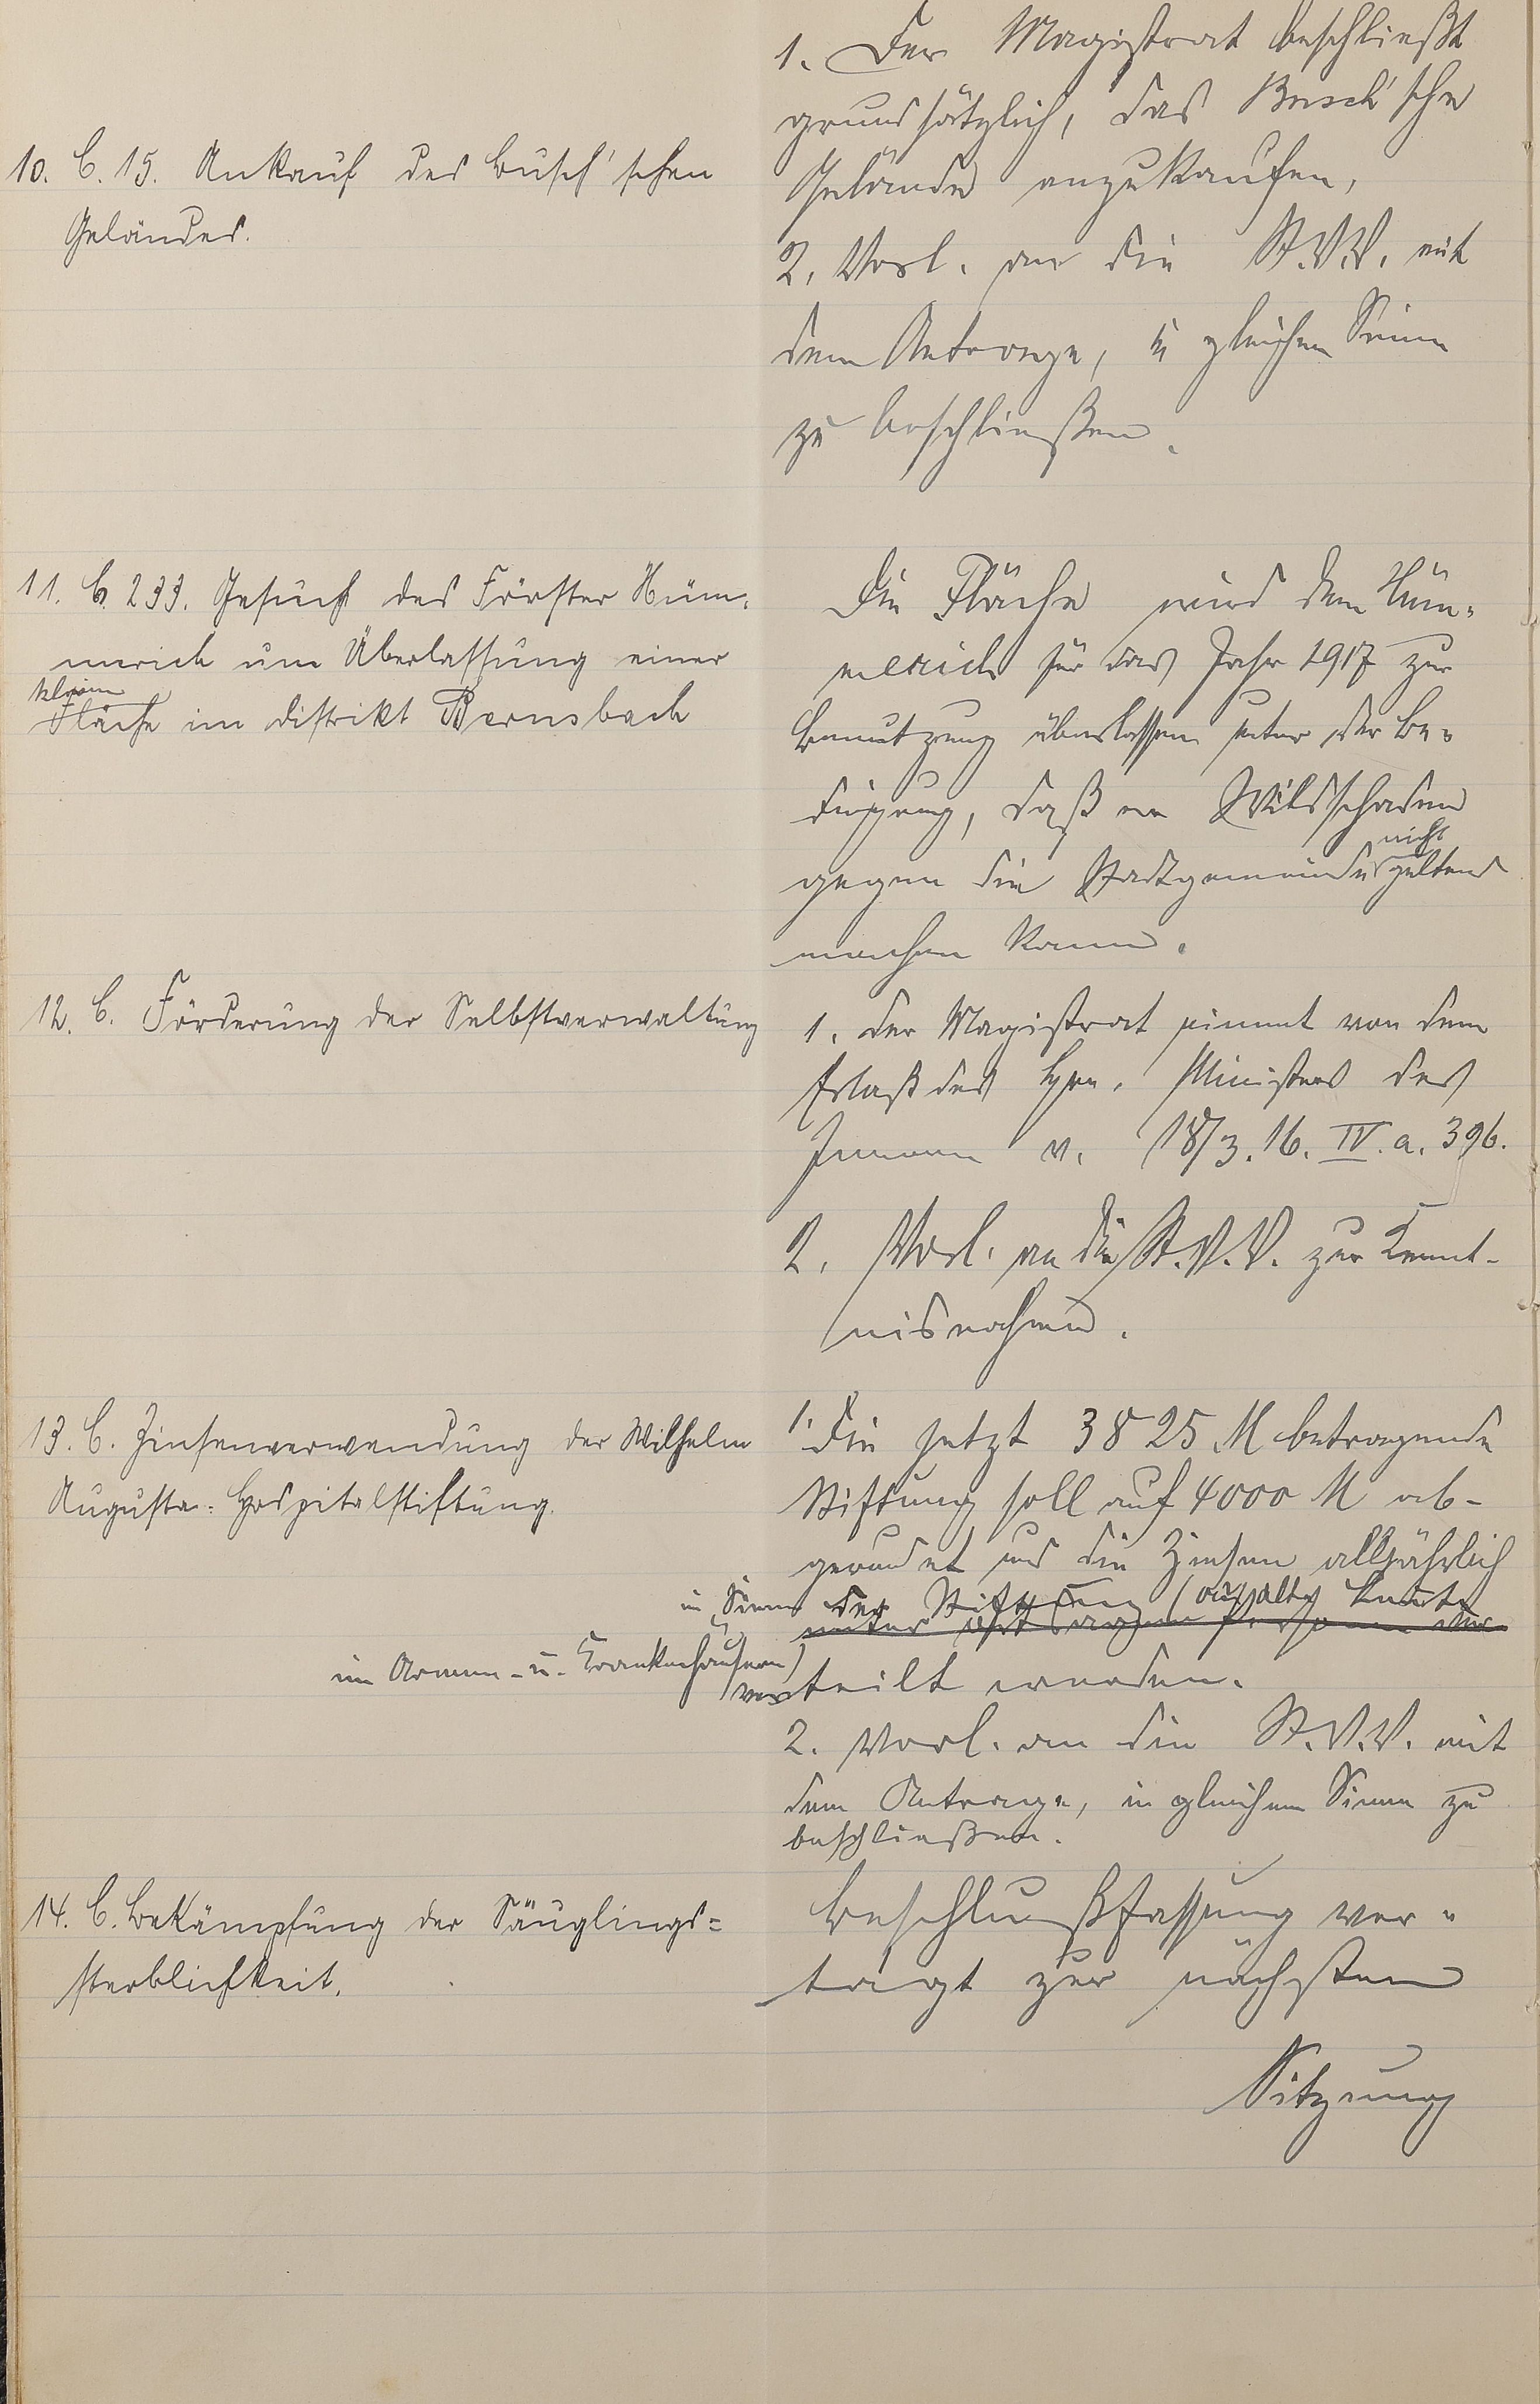 10. C. 15. Ankauf des Busch'schen
Geländes.
1. Der Magistrat beschließt
grundsätzlich, das Busch'sche
Gelände anzukaufen,
2. Vorl. an die St.V.V. mit
dem Antrage, in gleichem Sinne
zu beschließen.
11. C. 233. Gesuch des Förster Hüm-
merich um Überlassung einer
kleinen
Fläche im Distrikt Bernsbach
Die Fläche wird dem Hüm-
merich für das Jahr 1917 zur
Benutzung überlassen unter der Be-
dingung, daß er Wildschaden
nicht
gegen die Stadtgemeinde geltend
machen kann.
12. C. Förderung der Selbstverwaltung
1. Der Magistrat nimmt von dem
Erlaß des Hrn. Ministers des
Innern v. 18/3. 16. IV. a. 396.
2. Vorl. an die St.V.V. zur Kennt-
nisnahme.
13. C. Zinsenverwendung der Wilhelm
Augusta-Hospitalstiftung.
1. Die jetzt 3825 M betragende
Stiftung soll auf 4000 M ab-
gerundet und die Zinsen alljährlich
im Sinne der Stiftung (an alte Leute
unter Personen ver
im Armen- u. Krankenhausen)
verteilt werden.
2. Vorl. an die St.V.V. mit
dem Antrage, in gleichem Sinne zu
beschließen.
14. C. Bekämpfung der Säuglings-
sterblichkeit.
Beschlußfassung ver-
tagt zur nächsten
Sitzung